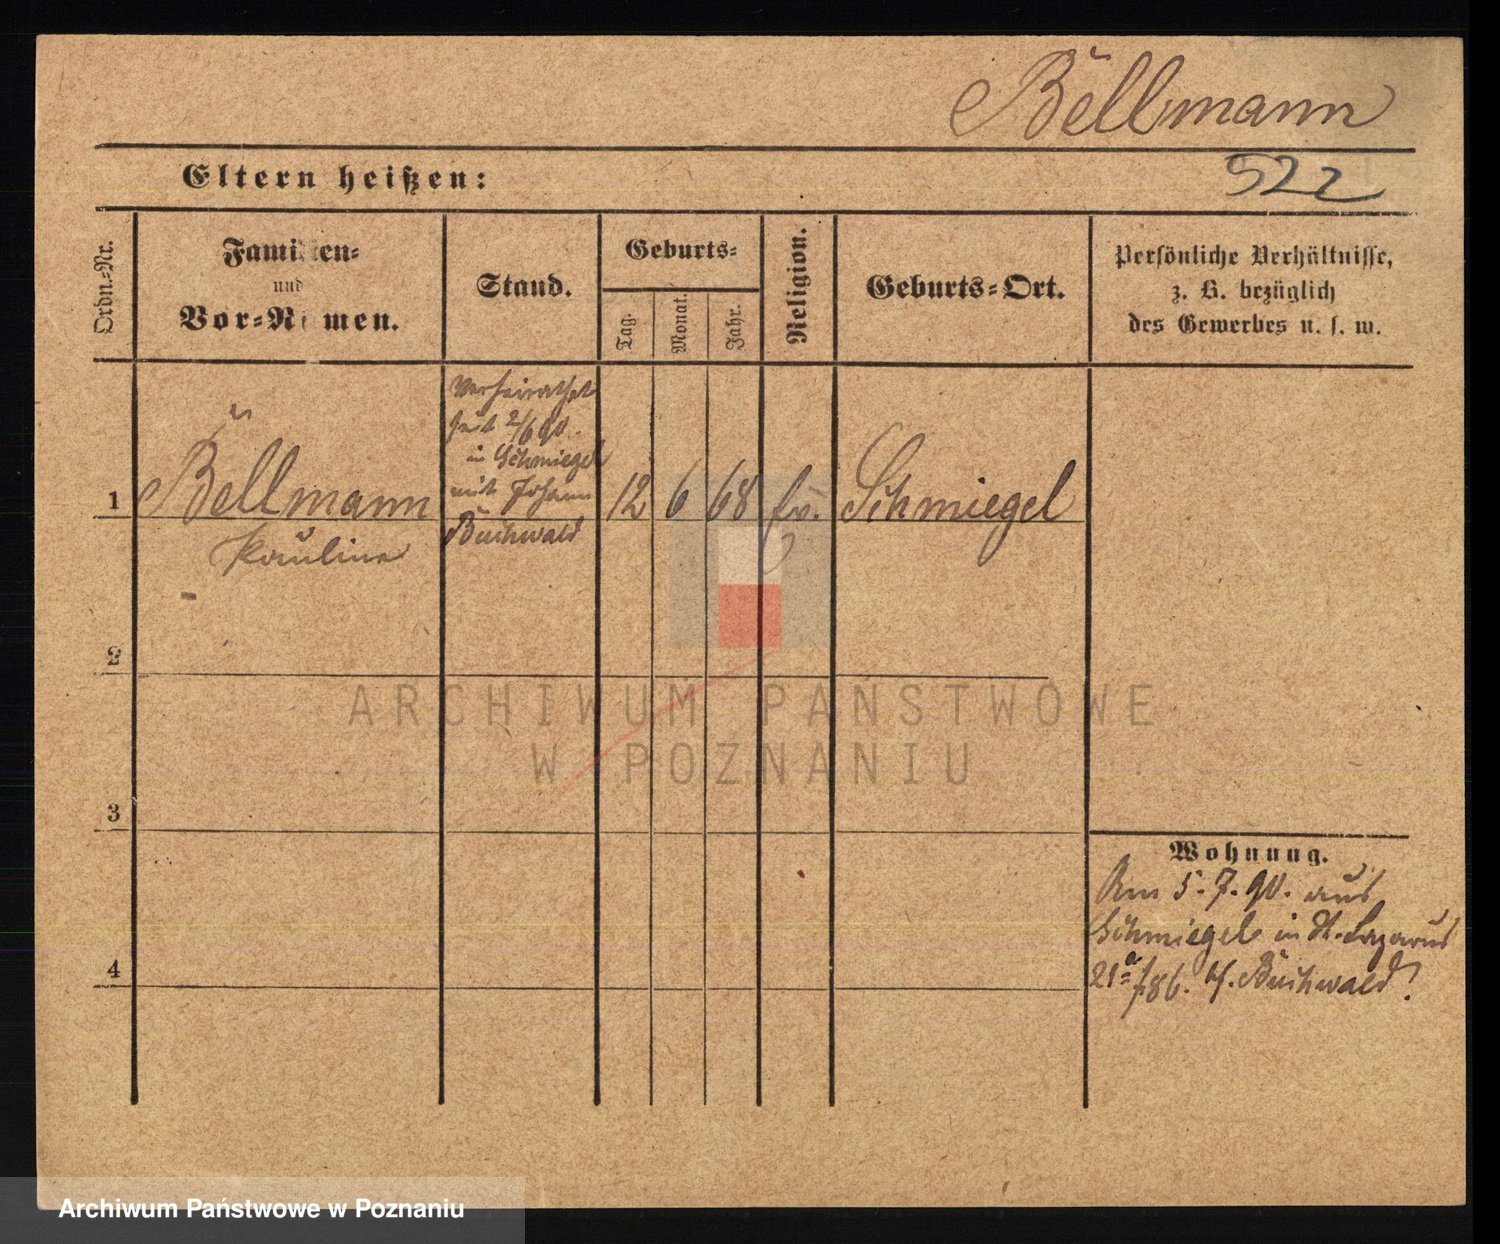 Böllmann
522
Eltern heißen:
Ordn.-Nr.
Familien-
und
Vor-Namen.
Stand.
Geburts-
Tag.
Monat.
Jahr.
Religion.
Geburts-Ort.
Persönliche Verhältnisse,
z. B. bezüglich
des Gewerbes u. s. w.
1
Böllmann
Pauline
Verheirathet
seit 2/6 90.
in Schmiegel
mit Johann
Buchwald
12
6
68
ev.
Schmiegel
2
3
4
Wohnung.
Am 5.7.90. aus
Schmiegel in St. Lazarus
21a /86. b/. Buchwald.
ARCHIWUM PAŃSTWOWE
W POZNANIU
Archiwum Państwowe w Poznaniu